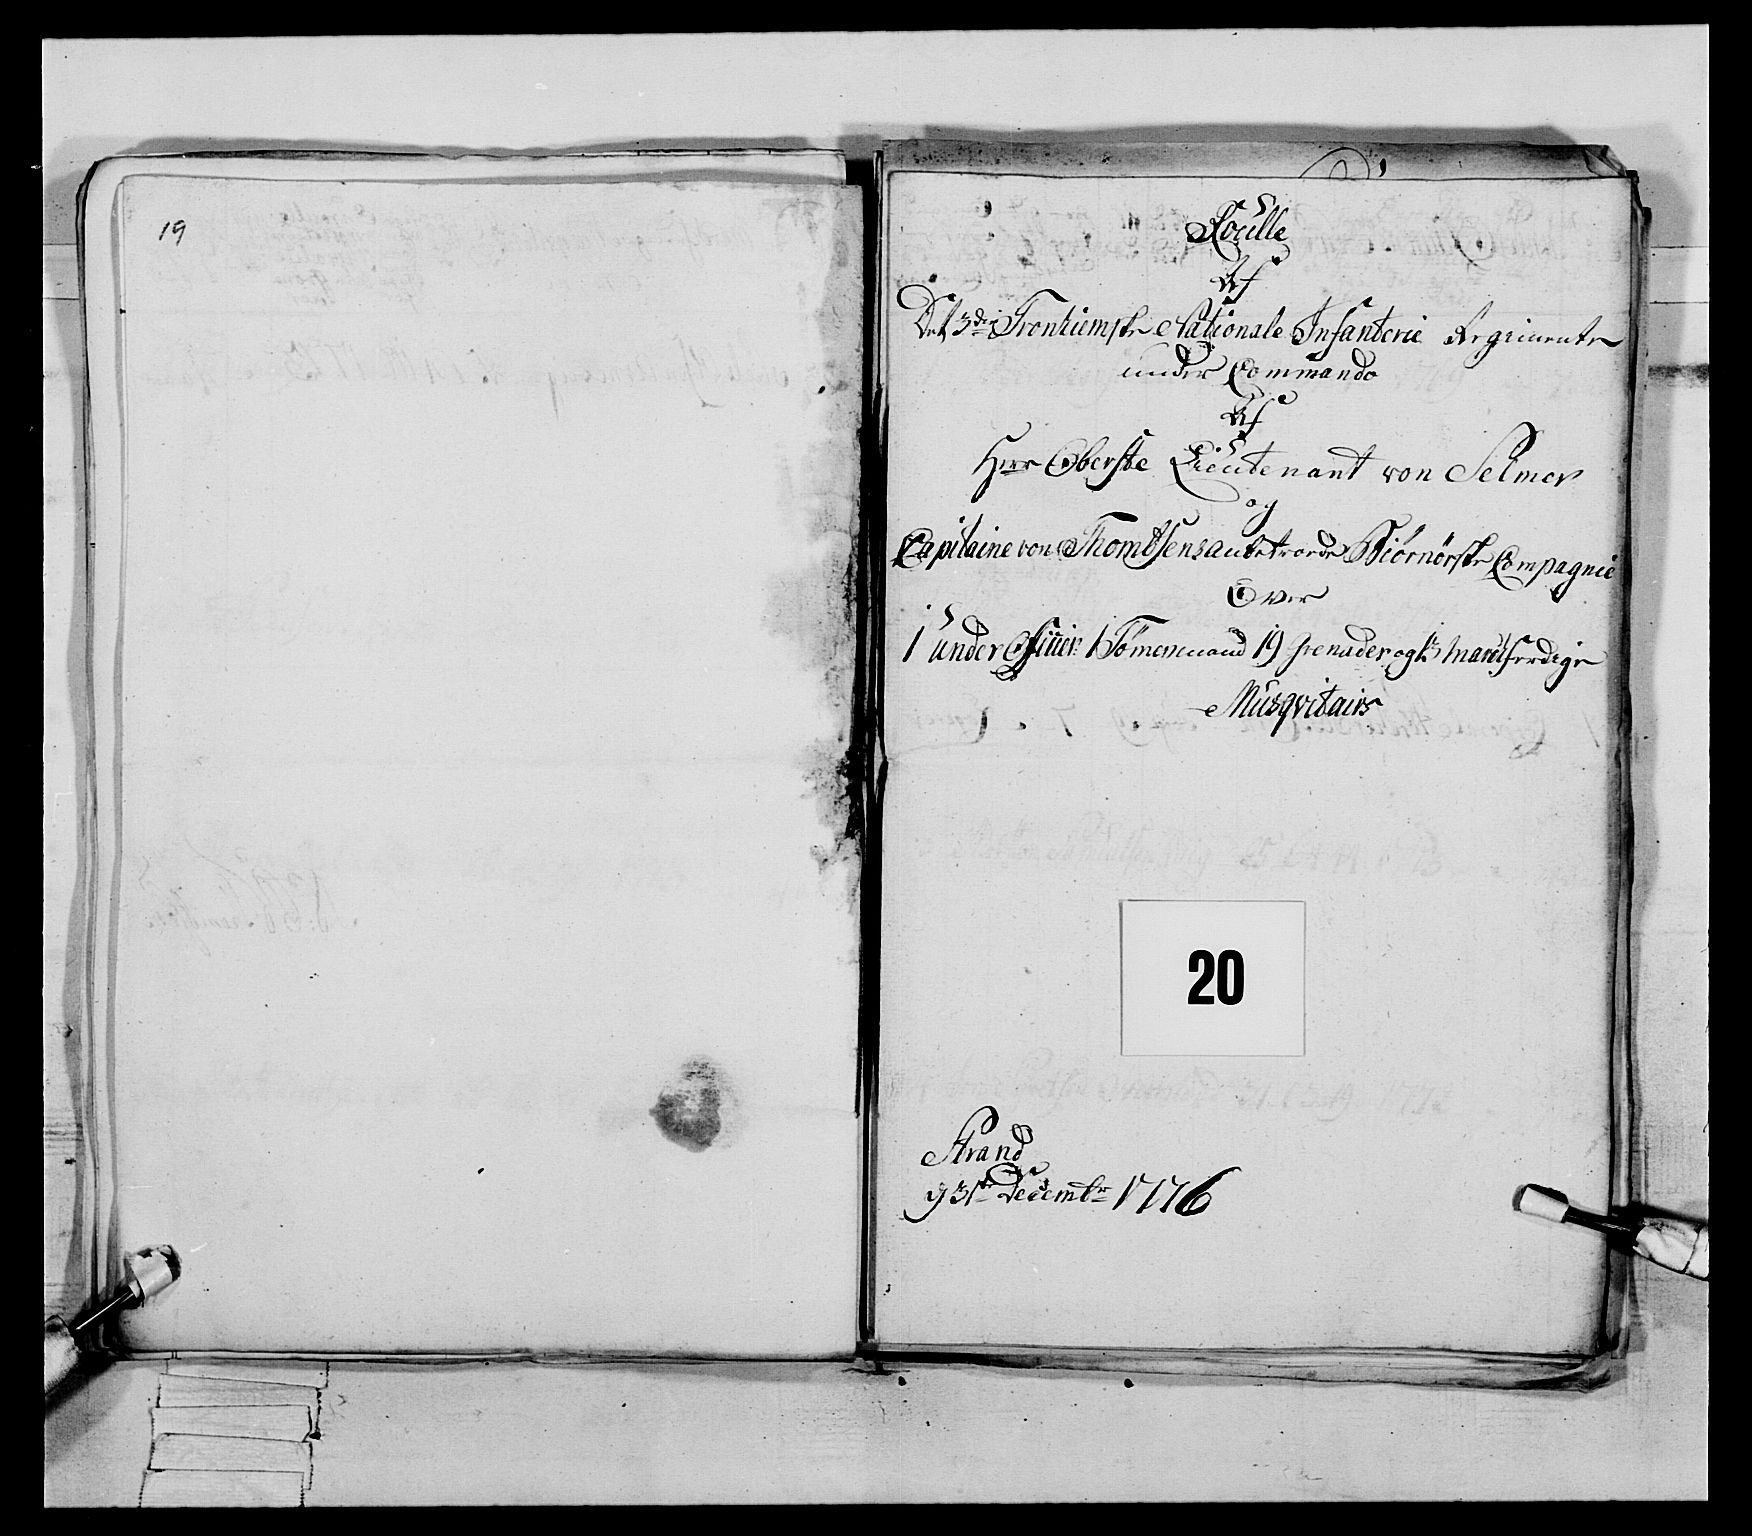 19
Roulle
Af
Det 3die Tronhiemske Nationale Infanterie Regimente
under Commando
Af
Herr Oberste Lieutenant von Selmer
og
Capitaine von Thomesens anbetroede Biörnörske Compagnie
Over
1 under Officier 1 Tömermand 19 grenader og marchferdige
Musqvitairs
20
Strand
d 31te Decembr 1776